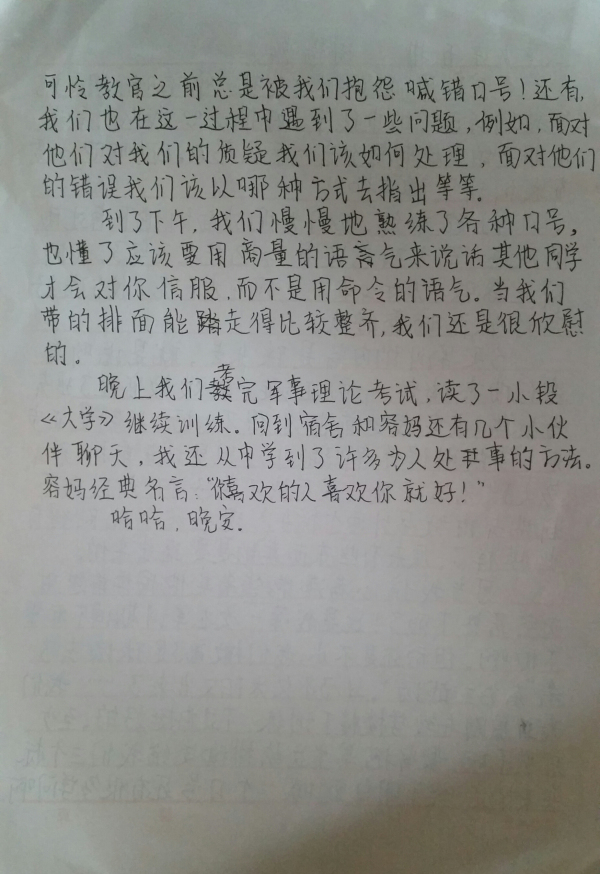 可怜教官之前总是被我们抱怨喊错口号！还有,
我们也在这一过程中遇到了一些问题，例如，面对
他们对我们的质疑我们该如何处理，面对他们
的错误我们该以哪种方式去指出等等。
到了下午，我们慢慢地熟练了各种口号。
也懂了应该要用商量的语气来说话其他同学
才会对你信服，而不是用命令的语气。当我们
带的排面能走得比较整齐，我们还是很欣慰
的。
晚上我们考完军事理论考试，读了一小段
《大学》继续训练。回到宿舍和容妈还有几个小伙
伴聊天，我还从中学到了许多为人处事的方法。
容妈经典名言：“你喜欢的人喜欢你就好！”
哈哈，晚安。